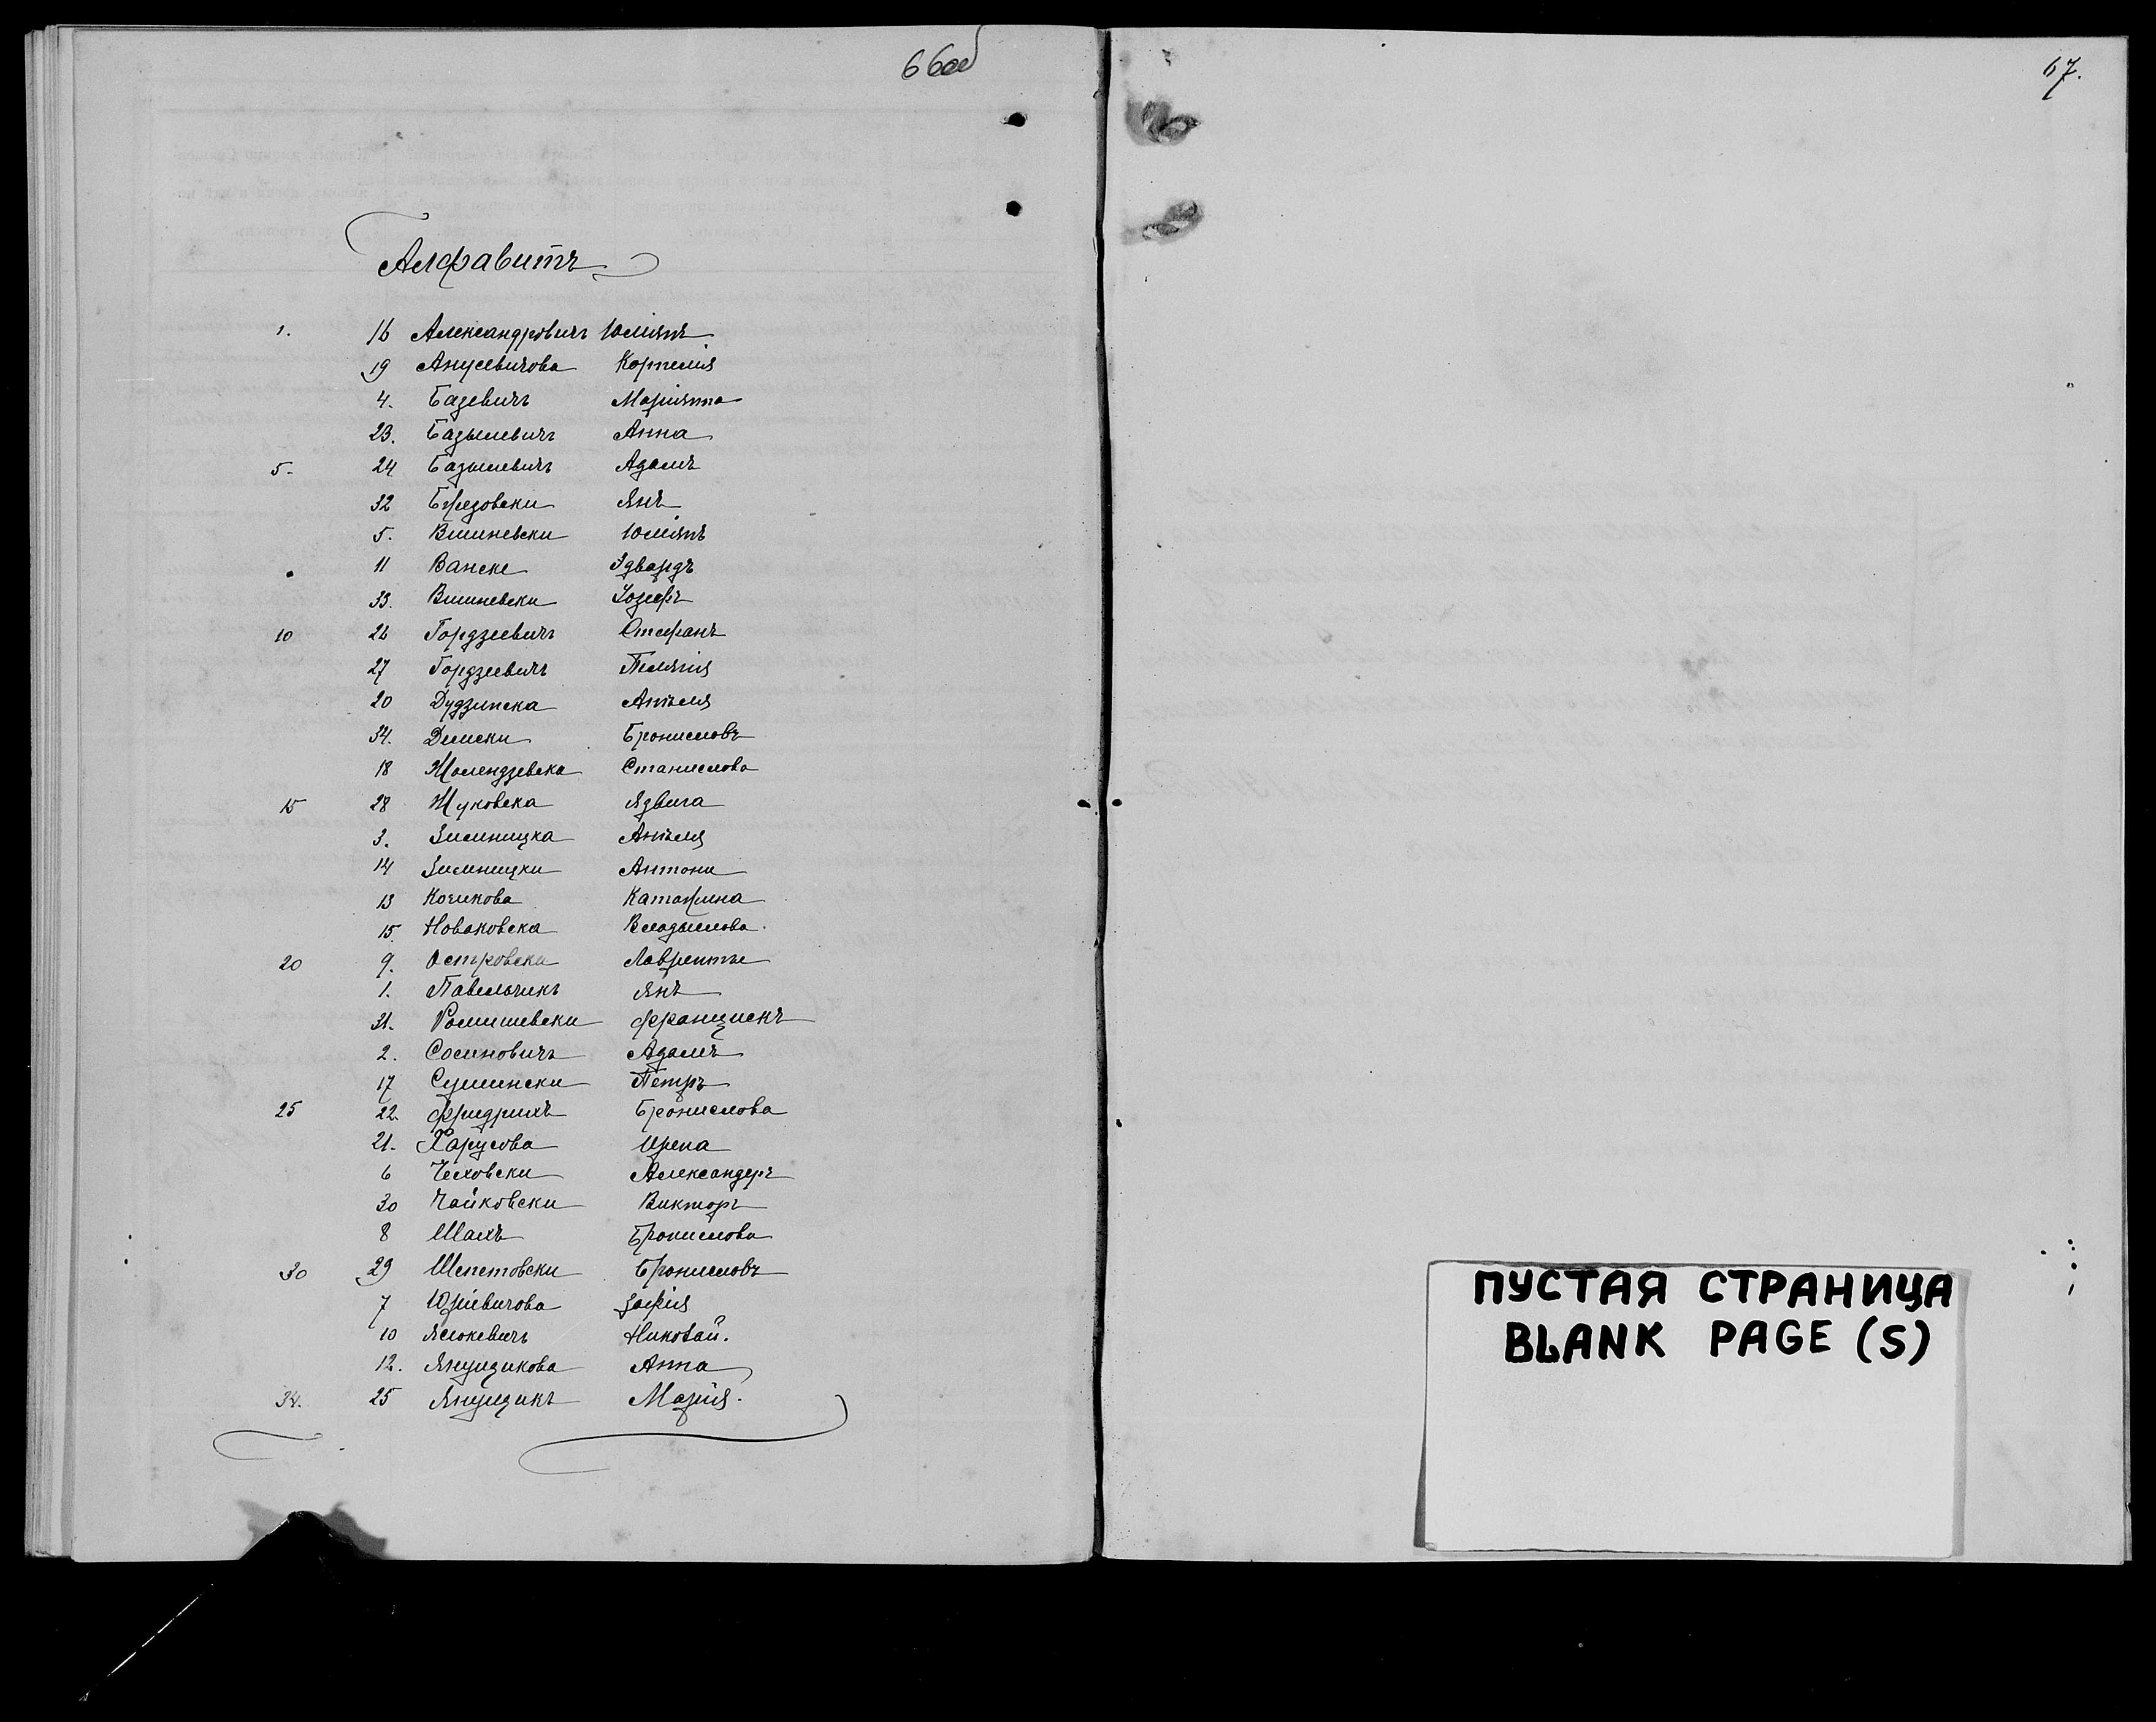 66об
67.
Алфавитъ
1. 16 Александровичъ Юлiянъ
19 Анусевичова Корнелiя
4. Базевичъ Марiянна
23. Базылевичъ Анна
5. 24 Базылевичъ Адамъ
32 Брезовски Янъ
5. Вишневски Юлiянъ
11 Ванске Эдвардъ
33. Вишневски Iозефъ
10 26 Гордзеевичъ Стефанъ
27 Гордзеевичъ Пелягiя
20 Дудзинска Анѣля
34. Дешски Брониславъ
18 Жолендзевска Станислава
15 28 Жуковска Ядвига
3. Зименицка Анѣля
14 Зименицки Антони
13 Кочикова Катарина
15. Новаковска Владыслава.
20 9. Островски Лаврентые
1. Павельчикъ Янъ
31. Ромишевски Францискъ
2. Сосиновичъ Адамъ
17 Сушински Петръ
25 22. Фридрихъ Бронислава
21. Харусова Ирена
6 Чеховски Александеръ
30 Чайковски Викторъ
8 Шахъ Бронислава
30 29 Шепетовски Брониславъ
7 Юрiевичова Зофiя
10 Яслюкевичъ Николай.
12. Янушикова Анна
34. 25 Янушикъ Марiя.
ПУСТАЯ СТРАНИЦА
BLANK PAGE (S)